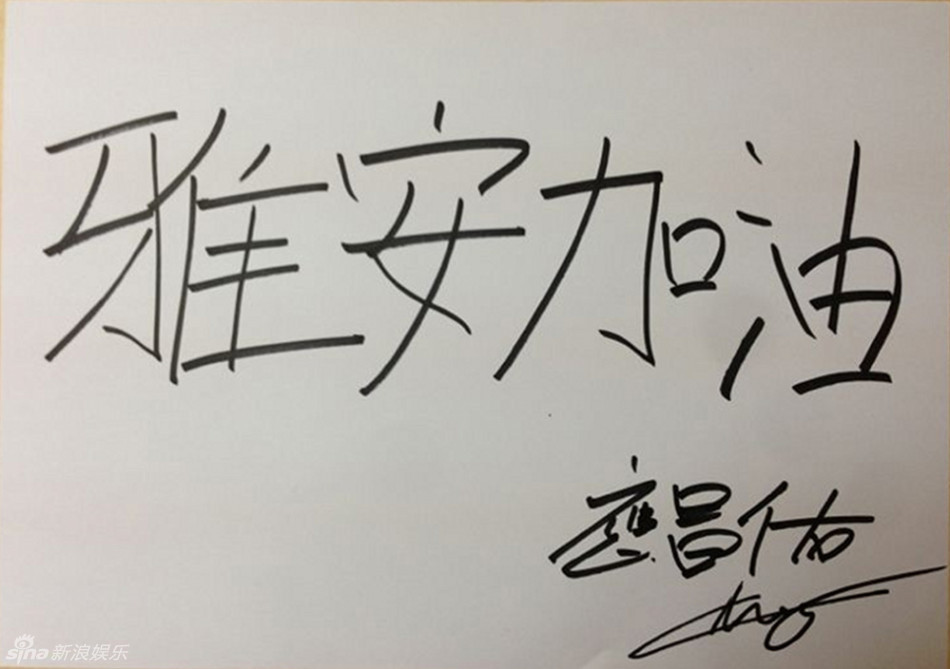 雅安加油
應昌佑
sina新浪娱乐